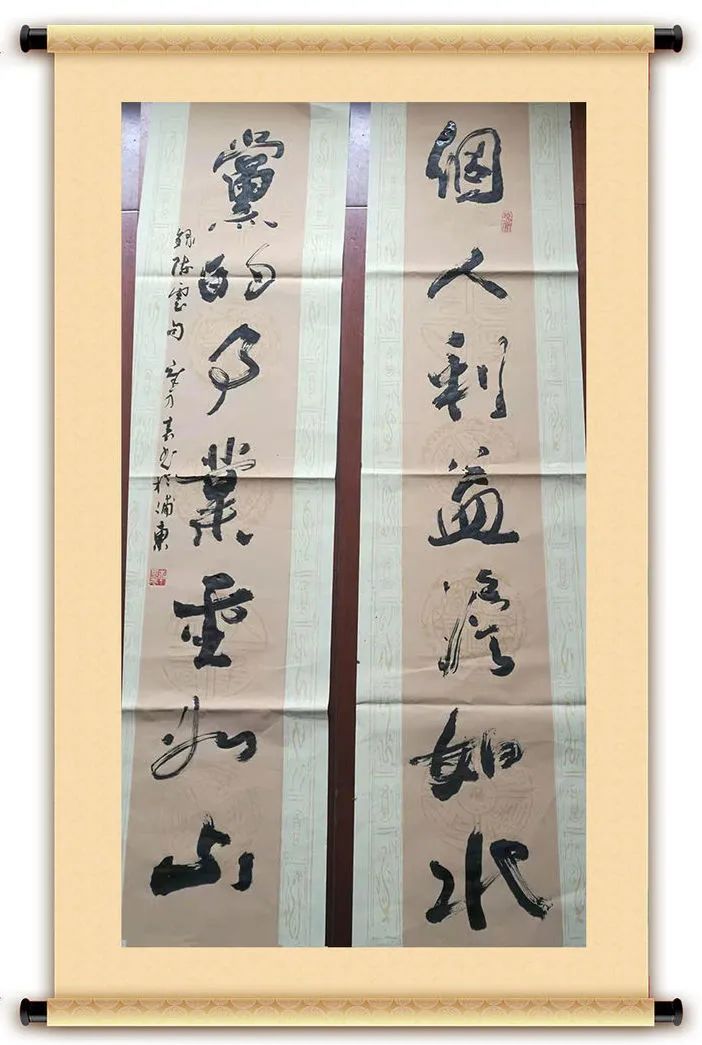 個人利益淡如水
黨的事業重如山
錄陳雲句
書於浦東